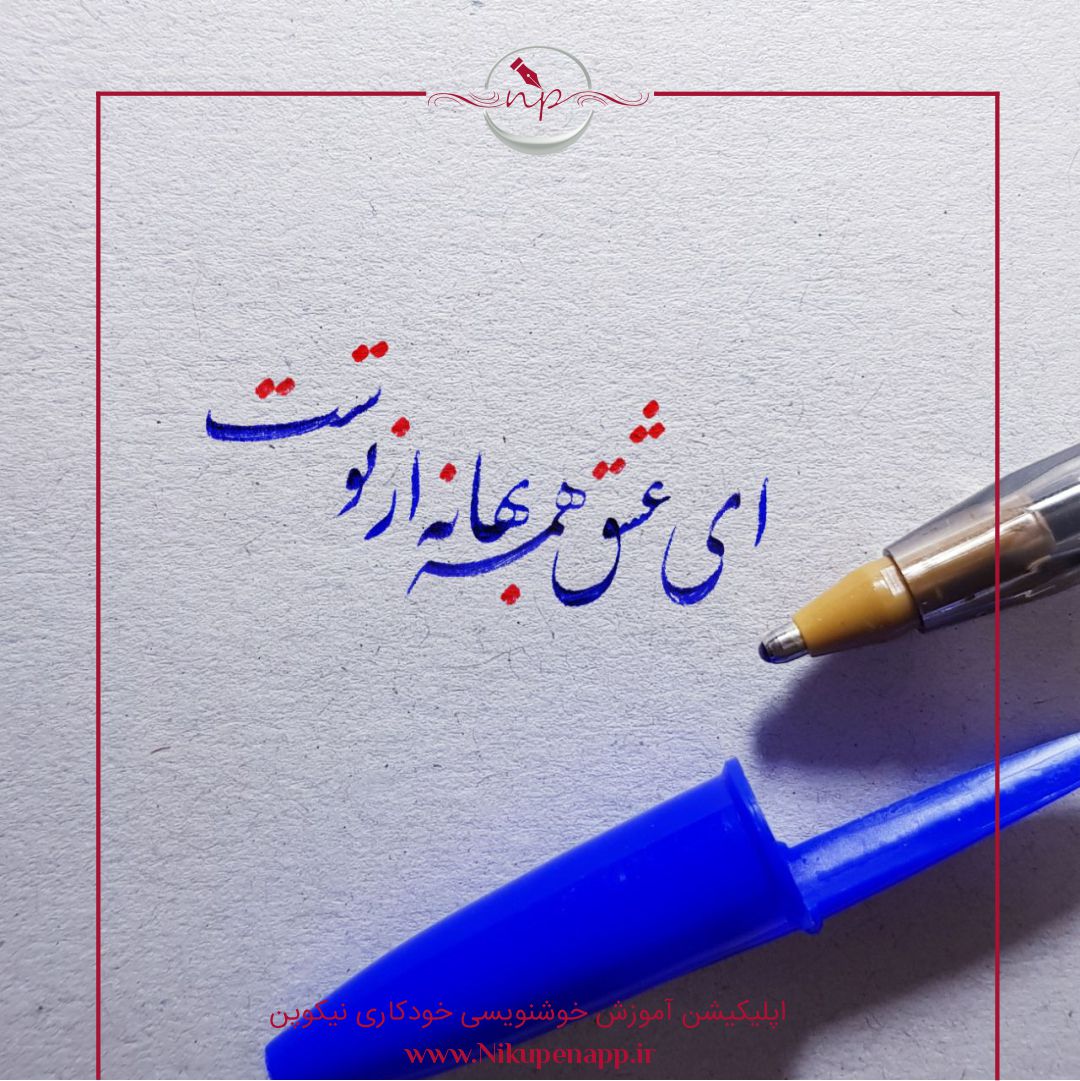 np
ای عشق همه بهانه از توست
اپلیکیشن آموزش خوشنویسی خودکاری نیکوپن
www.Nikupenapp.ir